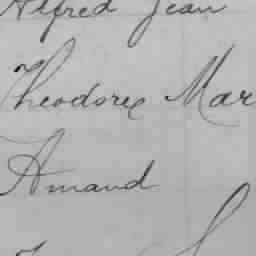 Alfred Jean
Theodore Mar
Amand